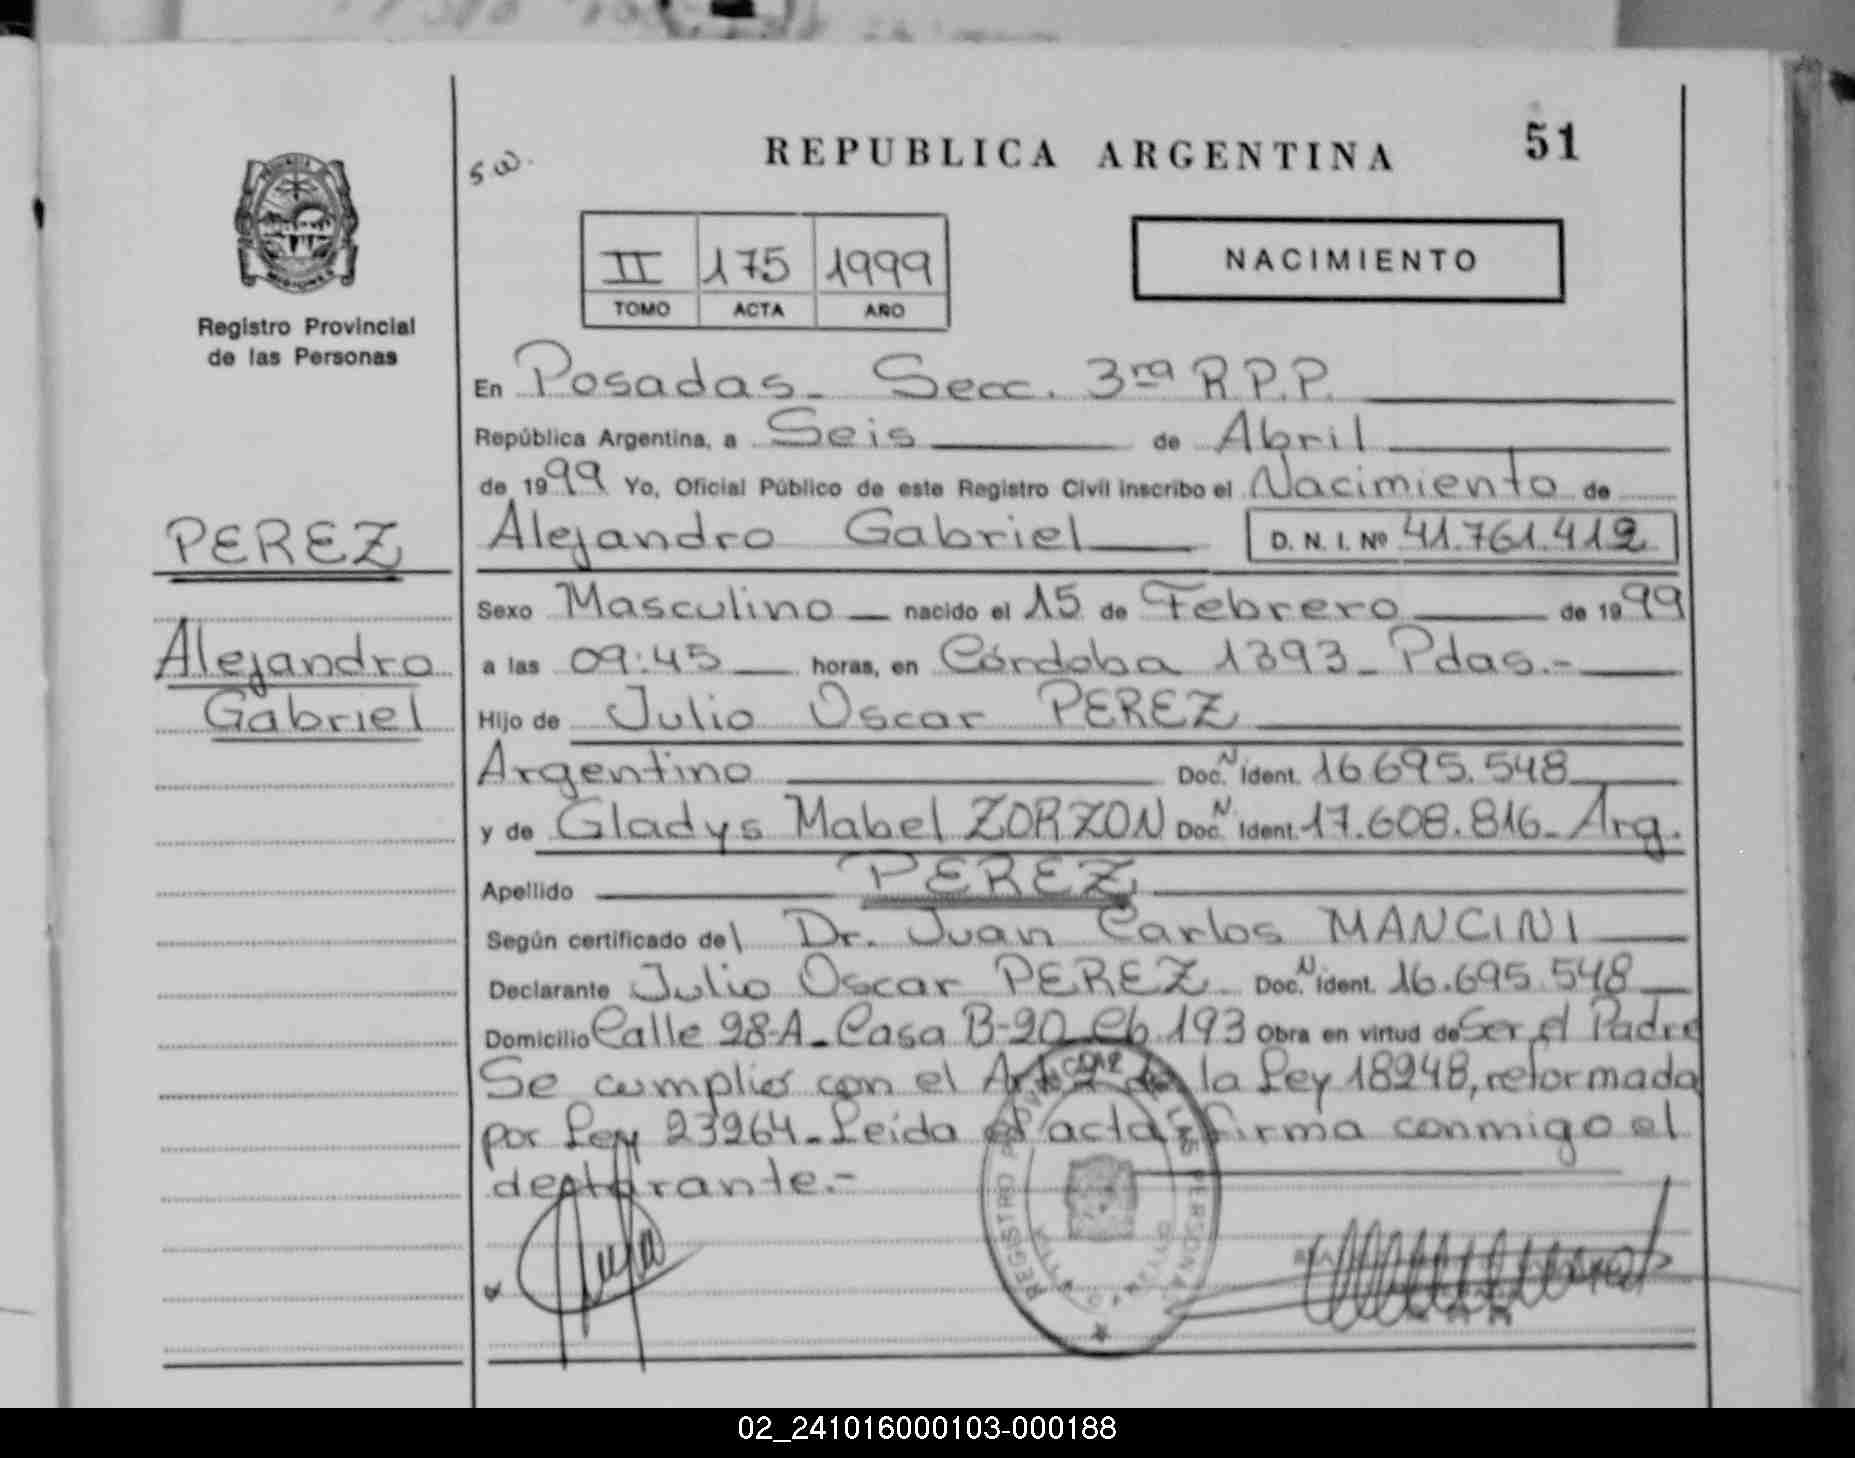 REPUBLICA ARGENTINA 51
Registro Provincial
de las Personas
II 175 1999
TOMO ACTA AÑO
NACIMIENTO
En Posadas - Secc. 3ra R.P.P.
República Argentina, a Seis de Abril
de 1999 Yo, Oficial Público de este Registro Civil inscribo el Nacimiento de
PEREZ
Alejandro Gabriel D. N. I. Nº 41.761.412
Sexo Masculino nacido el 15 de Febrero de 1999
Alejandro
Gabriel
a las 09:45 horas, en Córdoba 1393 - Pdas.-
Hijo de Julio Oscar PEREZ
Argentino Doc. N Ident. 16.695.548
y de Gladys Mabel ZORZON Doc. N Ident. 17.608.816 - Arg.
Apellido PEREZ
Según certificado del Dr. Juan Carlos MANCINI
Declarante Julio Oscar PEREZ Doc. N Ident. 16.695.548
Domicilio Calle 98-A - Casa B-20 Ch. 193 Obra en virtud de Ser el Padre
Se cumplió con el Art. 2 de la Ley 18248, reformada
por Ley 23264 - Leída el acta, firma conmigo el
declarante.-
REGISTRO PROVINCIAL DE LAS PERSONAS
02_241016000103-000188